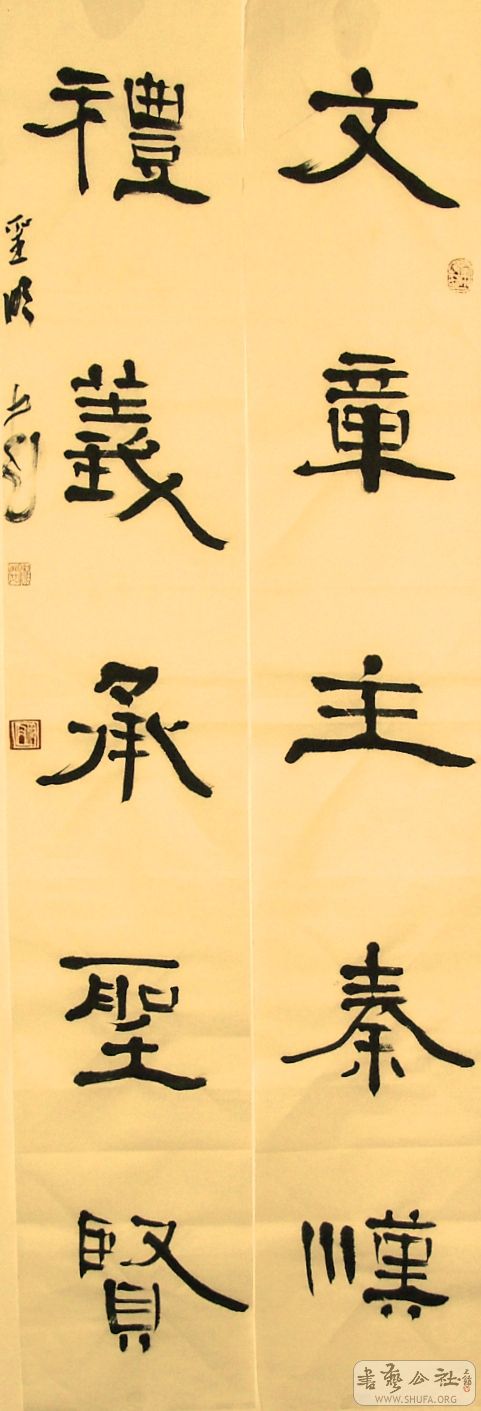 文章主秦漢
禮義承聖賢
書藝公社
WWW.SHUFA.ORG